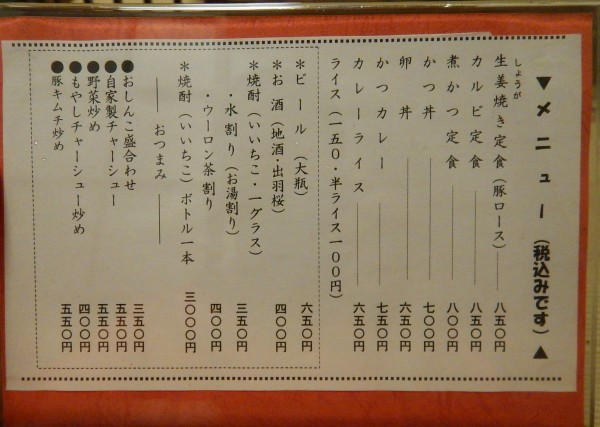 ▼メニュー（税込みです）▲
しょうが
生姜焼き定食（豚ロース）――八五〇円
カルビ定食――八五〇円
煮かつ定食――八〇〇円
かつ丼――七〇〇円
卵丼――六五〇円
かつカレー――七五〇円
カレーライス――六五〇円
ライス（一五〇・半ライス一〇〇円）
＊ビール（大瓶）六五〇円
＊お酒（地酒・出羽桜）四〇〇円
＊焼酎（いいちこ・一グラス）
・水割り（お湯割り）三五〇円
・ウーロン茶割り四〇〇円
＊焼酎（いいちこ）ボトル一本三〇〇〇円
――おつまみ――
●おしんこ盛合わせ三五〇円
●自家製チャーシュー五五〇円
●野菜炒め五五〇円
●もやしチャーシュー炒め四〇〇円
●豚キムチ炒め五五〇円